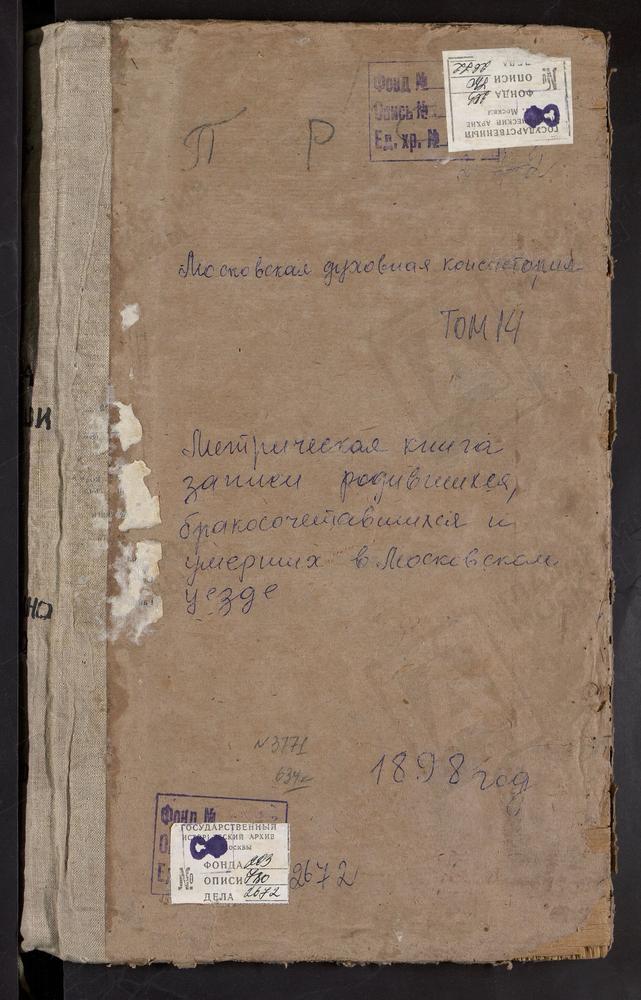 П Р
Фонд №
Опись №
Ед. хр. №
ГОСУДАРСТВЕННЫЙ
Москвы
ФОНДА 203
ОПИСИ 780
ДЕЛА 2672
№
Московская духовная консистория
Том 14
Метрическая книга
записи родившихся,
бракосочетавшихся и
умерших в Московском
уезде
N 3771
634л
1898 год
Фонд №
ГОСУДАРСТВЕННЫЙ
ИСТОРИЧЕСКИЙ АРХИВ
Москвы
ФОНДА 203
ОПИСИ 780
ДЕЛА 2672
№
2672